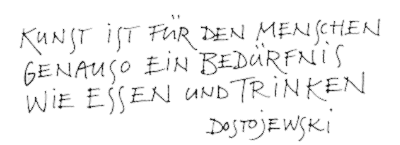 KUNST IST FÜR DEN MENSCHEN
GENAUSO EIN BEDÜRFNIS
WIE ESSEN UND TRINKEN
DOSTOJEWSKI